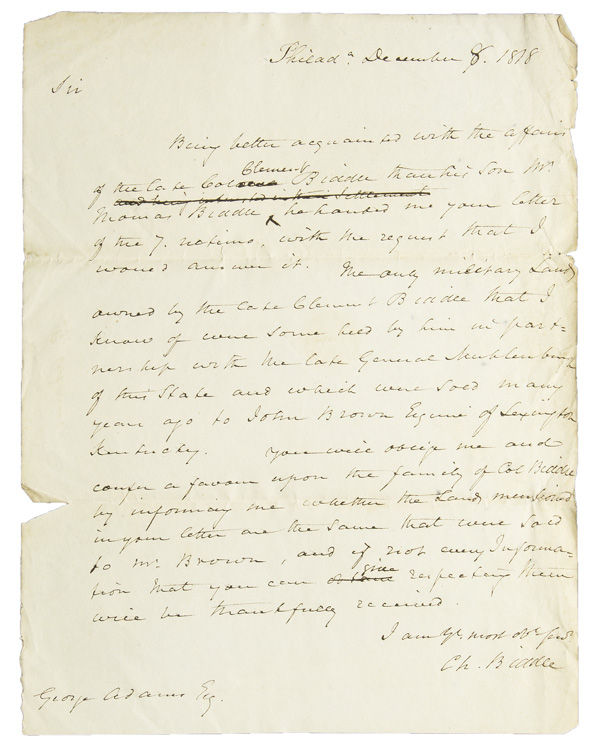 Philada. December 8. 1818
Sir
Being better acquainted with the affairs
Clement
of the late Col Biddle than his Son Mr.
and being interested in their Settlement
Thomas Biddle ‸ he handed me your letter
of the 7. ultimo, with the request that I
would answer it. The only military Lands
owned by the late Clement Biddle that I
know of were some held by him in part-
nership with the late General Muhlenburgh
of this State and which were sold many
years ago to John Brown Esquire of Lexington
Kentucky. You will oblige me and
confer a favour upon the family of Col Biddle
by informing me whether the Lands mentioned
in your letter are the same that were sold
to Mr. Brown, and if not every Informa-
give
tion that you can respecting them
will be thankfully received.
I am Yr. most obt. Servt.
Ch. Biddle
George Adams Esq.